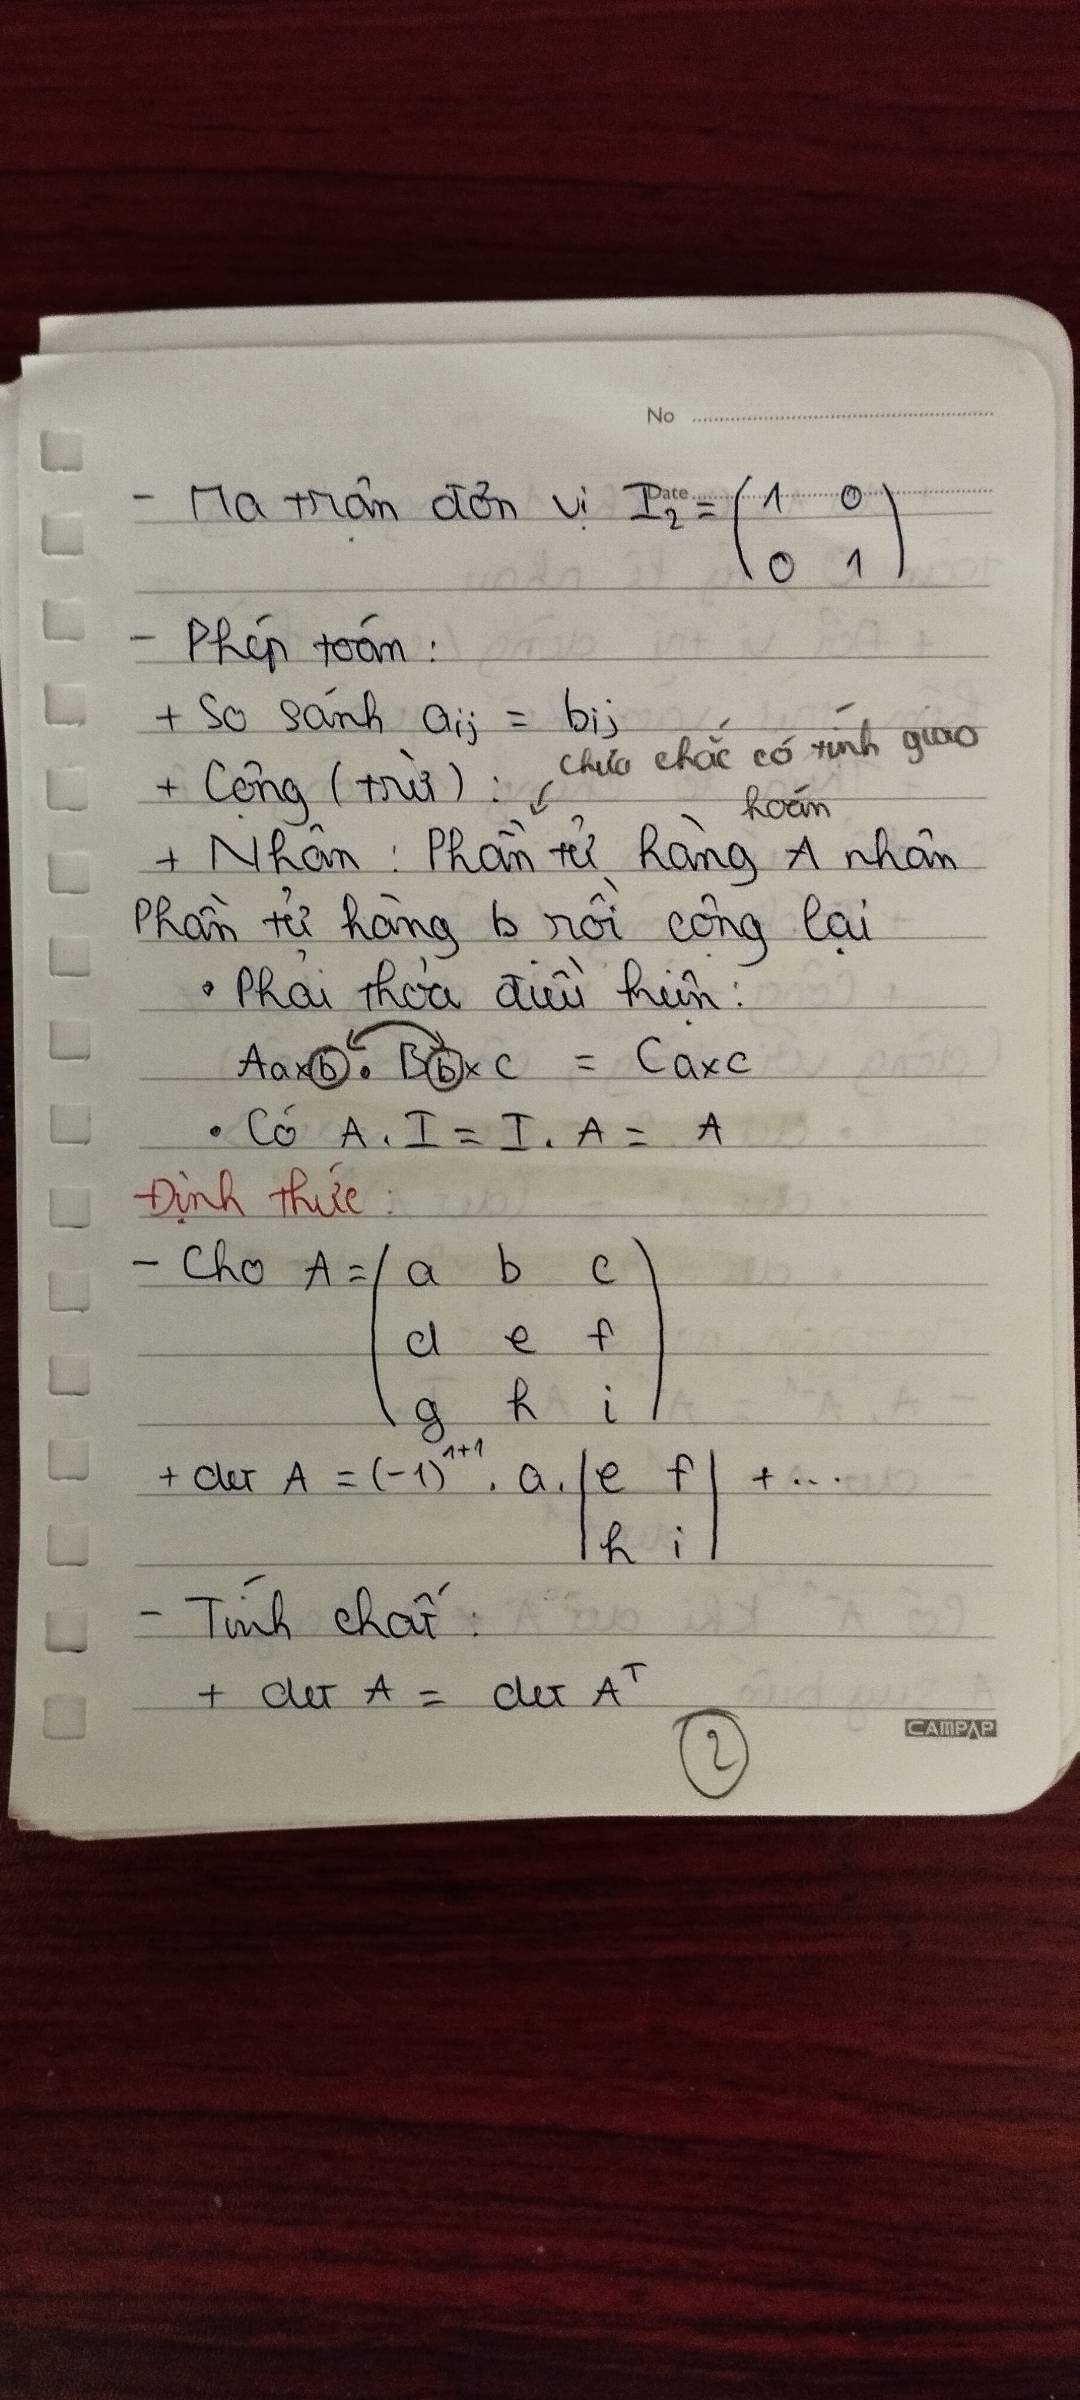 No
Date
- Ma trận đơn vị I₂ = (1 0
0 1)
- Phép toán:
+ So sánh aij = bij
chưa chắc có tính giao
hoán
+ Cộng (trừ):
+ Nhân: Phần tử hàng A nhân
Phần tử hàng b rồi cộng lại
• Phải thỏa điều kiện:
Aaxb . Bbxc = Caxc
• Có A . I = I . A = A
Định thức:
- Cho A = (a b c
d e f
g h i)
+ det A = (-1)¹⁺¹ . a . |e f| + ...
|h i|
- Tính chất:
+ det A = det Aᵀ
2
CAMPAP